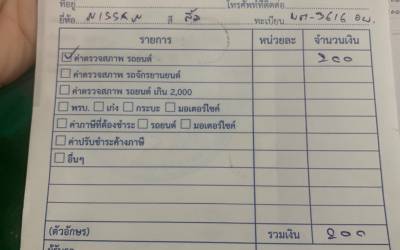 ที่อยู่ โทรศัพท์ที่ติดต่อ
ยี่ห้อ NISSAN สี ทะเบียน
รายการ หน่วยละ จำนวนเงิน
ค่าตรวจสภาพ รถยนต์ 200
ค่าตรวจสภาพ รถจักรยานยนต์
ค่าตรวจสภาพ รถยนต์ เกิน 2,000
พรบ. เก๋ง กระบะ มอเตอร์ไซค์
ค่าภาษีที่ต้องชำระ รถยนต์ มอเตอร์ไซค์
ค่าปรับชำระค้างภาษี
อื่นๆ
(ตัวอักษร) รวมเงิน 200